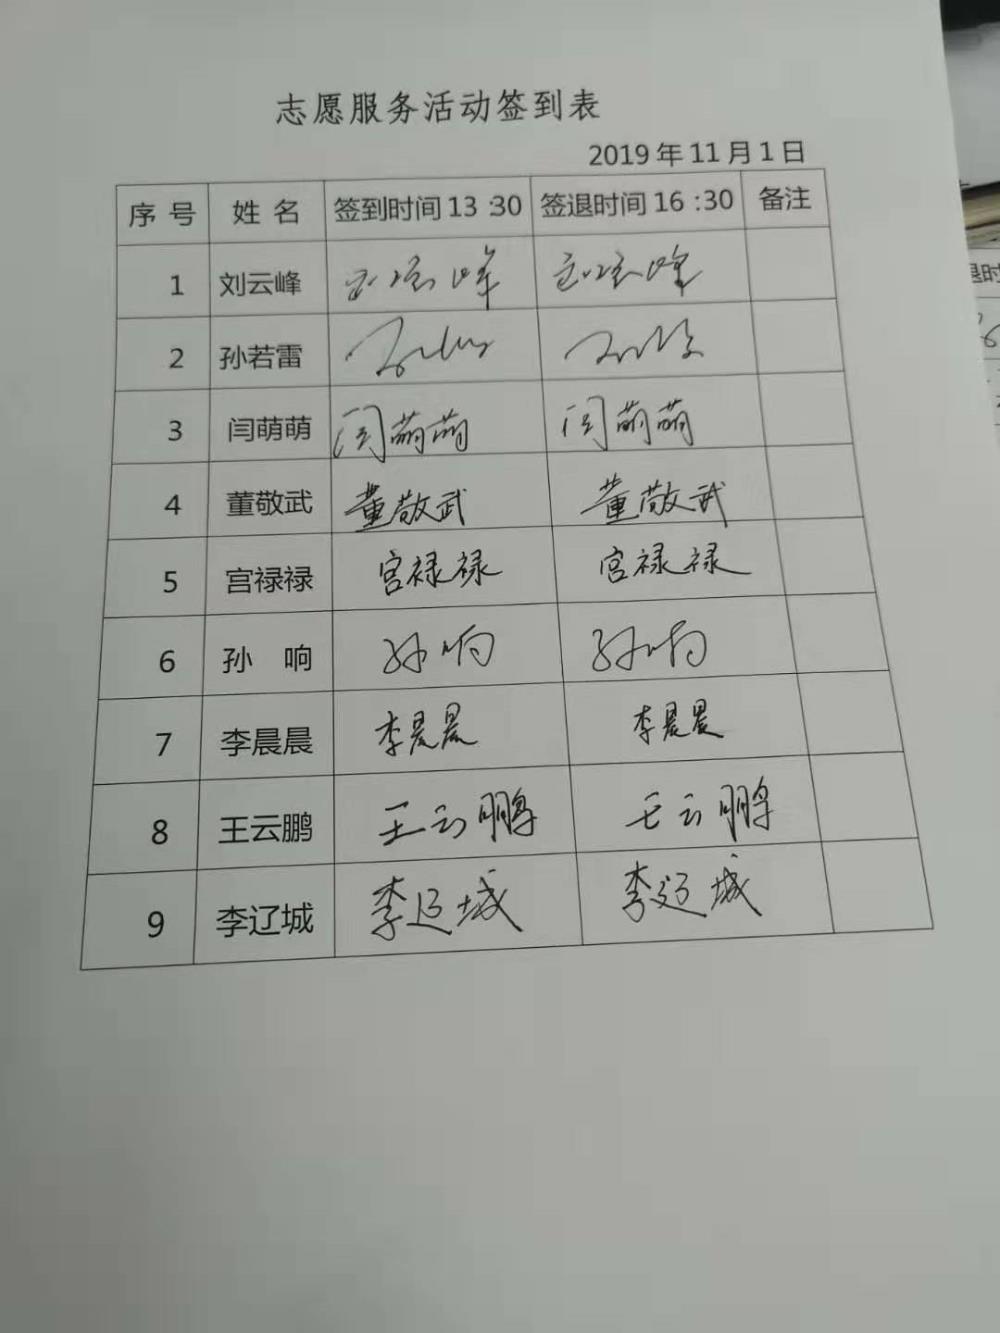 志愿服务活动签到表
2019年11月1日
序 号 姓 名 签到时间13:30 签退时间16:30 备注
1 刘云峰 刘云峰 刘云峰
2 孙若雷
3 闫萌萌 闫萌萌 闫萌萌
4 董敬武 董敬武 董敬武
5 宫禄禄 宫禄禄 宫禄禄
6 孙 响 孙响 孙响
7 李晨晨 李晨晨 李晨晨
8 王云鹏 王云鹏 王云鹏
9 李辽城 李辽城 李辽城
退时